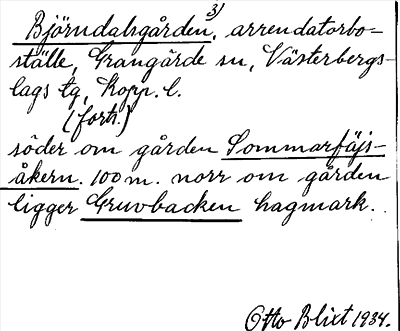 Björndalsgården,³⁾ arrendatorbo-
ställe, Grangärde sn, Västerbergs-
lags tg, Kopp. l.
(forts.)
söder om gården Sommarfäjs-
åkern. 100 m. norr om gården
ligger Gruvbacken hagmark.
Otto Blixt 1934.